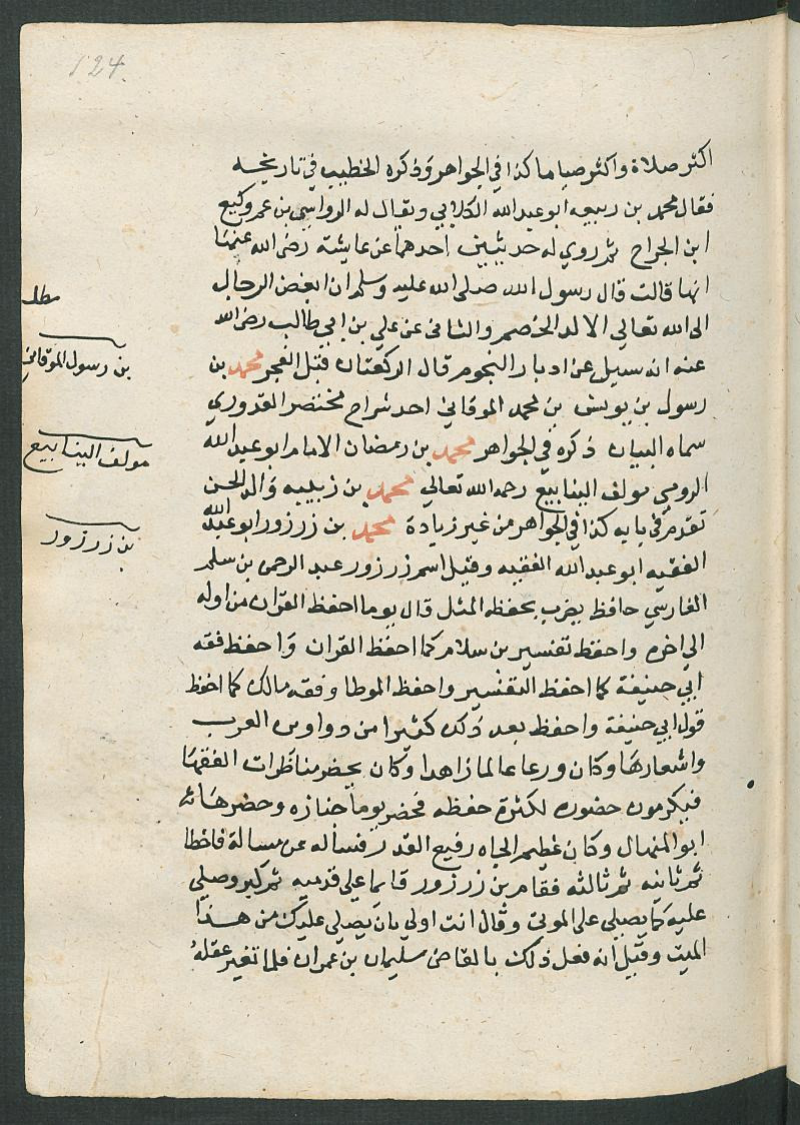 124
اكثر صلاة واكثر صياما كذا في الجواهر وذكره الخطيب في تاريخه
فقال محمد بن ربيعه ابو عبد الله الكلابي ويقال له الرواسي بن عم وكيع
ابن الجراح ثم روي له حديثين احدهما عن عايشة رضى الله عنها
انها قالت قال رسول الله صلى الله عليه وسلم ان ابغض الرجال
الى الله تعالى الالد الخصم والثانى عن علي بن ابي طالب رضى الله
عنه انه سيل عن ادبار النجوم قال الركعتان قبل الفجر محمد بن
رسول بن يونس بن محمد الموقاني احد شراح مختصر القدوري
سماه البيان ذكره في الجواهر محمد بن رمضان الامام ابو عبد الله
الرومي مولف الينابيع رحمه الله تعالى محمد بن زبيبه والد الحسن
تقدم في بابه كذا في الجواهر من غير زيادة محمد بن زرزور ابو عبد الله
الفقيه ابو عبد الله الفقيه وقيل اسم زرزور عبد الرحمن بن سلم
الفارسي حافظ يضرب بحفظه المثل قال يوما احفظ القران من اوله
الى اخره واحفظ تفسير بن سلام كما احفظ القران واحفظ فقه
ابي حنيفة كما احفظ التفسير واحفظ الموطا وفقه مالك كما احفظ
قول ابي حنيفة واحفظ بعد ذلك كثيرا من دواوين العرب
واشعارها وكان ورعا عالما زاهدا وكان يحضر مناظرات الفقها
فيكرمون حضوره لكثرة حفظه فحضر يوما جنازه وحضرها
ابو المنهال وكان عظيم الجاه رفيع القدر فساله عن مسالة فاخطا
ثم ثانيه ثم ثالثه فقام بن زرزور قايما على قدميه ثم كبر وصلي
عليه كما يصلي على الموتى وقال انت اولي بان يصلي عليك من هذا
الميت وقيل انه فعل ذلك بالقاضى سليمان بن عمران فلما تغير عقله
مطلـ
بن رسول الموقاني
مولف الينابيع
بن زرزور